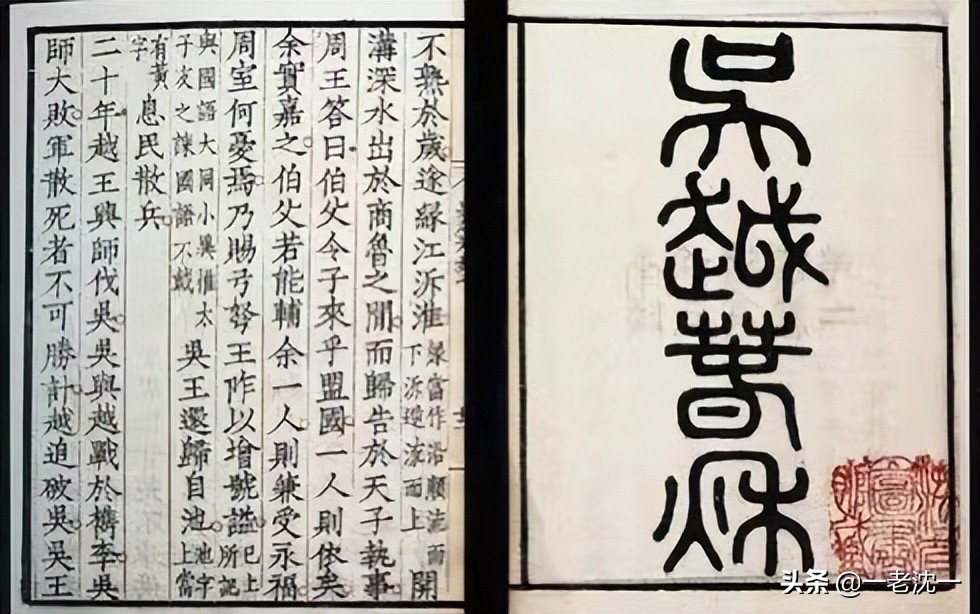 吳越春秋
不熟於歲遂緣江泝淮緣當作沿順流而下泝逆流而上開
溝深水出於商魯之間而歸告於天子執事
周王答曰伯父令子來乎盟國一人則依矣
余實嘉之伯父若能輔余一人則兼受永福
周室何憂焉乃賜弓弩王阼以增號謚巳上所記
與國語大同小異惟太子友之諫國語不載吳王還歸自池池字上當
有黃字息民散兵
二十年越王興師伐吳吳與越戰於檇李吳
師大敗軍散死者不可勝計越迫破吳吳王
头条 @一老沈一